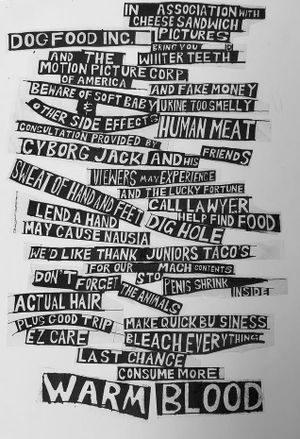 IN ASSOCIATION WITH
CHEESE SANDWICH
PICTURES
DOGFOOD INC.
BRING YOU
AND THE WHITER TEETH
MOTION PICTURE CORP
OF AMERICA
BEWARE OF SOFT BABY AND FAKE MONEY
& URINE TOO SMELLY
OTHER SIDE EFFECTS
HUMAN MEAT
CONSULTATION PROVIDED BY
CYBORG JACK AND HIS FRIENDS
VIEWERS MAY EXPERIENCE
SWEAT OF HAND AND FEET
AND THE LUCKY FORTUNE
CALL LAWYER
LEND A HAND
DIG HOLE
HELP FIND FOOD
MAY CAUSE NAUSIA
WE'D LIKE THANK JUNIORS TACO'S
FOR OUR MACH CONTENTS
DON'T FORGET STO PENIS SHRINK INSIDE
THE ANIMALS
ACTUAL HAIR
PLUS GOOD TRIP
MAKE QUICK BUSINESS
EZ CARE
BLEACH EVERYTHING
LAST CHANCE
CONSUME MORE!
WARM BLOOD